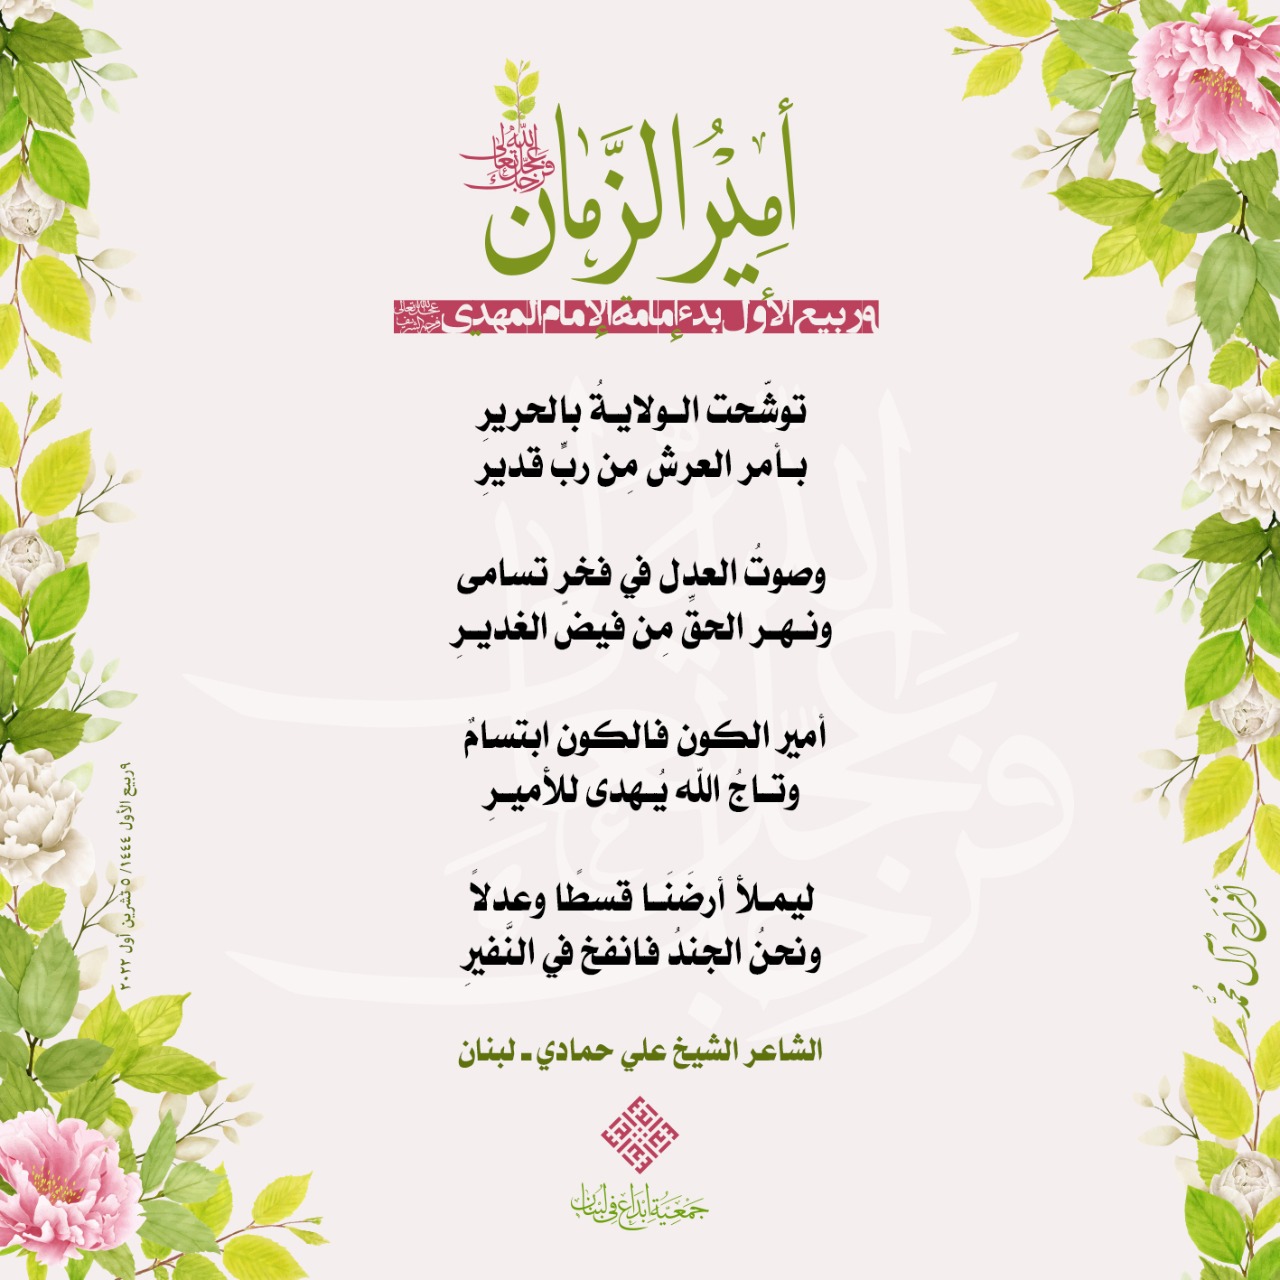 أَمِيْرُ الزَّمَان
عجّل الله تعالى فرجك
٩ ربيع الأول بدء إمامة الإمام المهدي
توشّحت الـولايـةُ بالحريرِ
بـأمر العرش مِن ربٍّ قديرِ
وصوتُ العدل في فخرٍ تسامى
ونـهـر الحقِّ مِن فيض الغديـرِ
أمير الكون فالكون ابتسامٌ
وتـاجُ الله يُـهدى للأميـرِ
ليمـلأ أرضَنَـا قسطًا وعدلاً
ونحنُ الجندُ فانفخ في النَّفيرِ
الشاعر الشيخ علي حمادي ـ لبنان
جمعية إبداع في لبنان
٩ ربيع الأول ١٤٤٤/ ٥ تشرين أول ٢٠٢٢
أفراح آل محمد